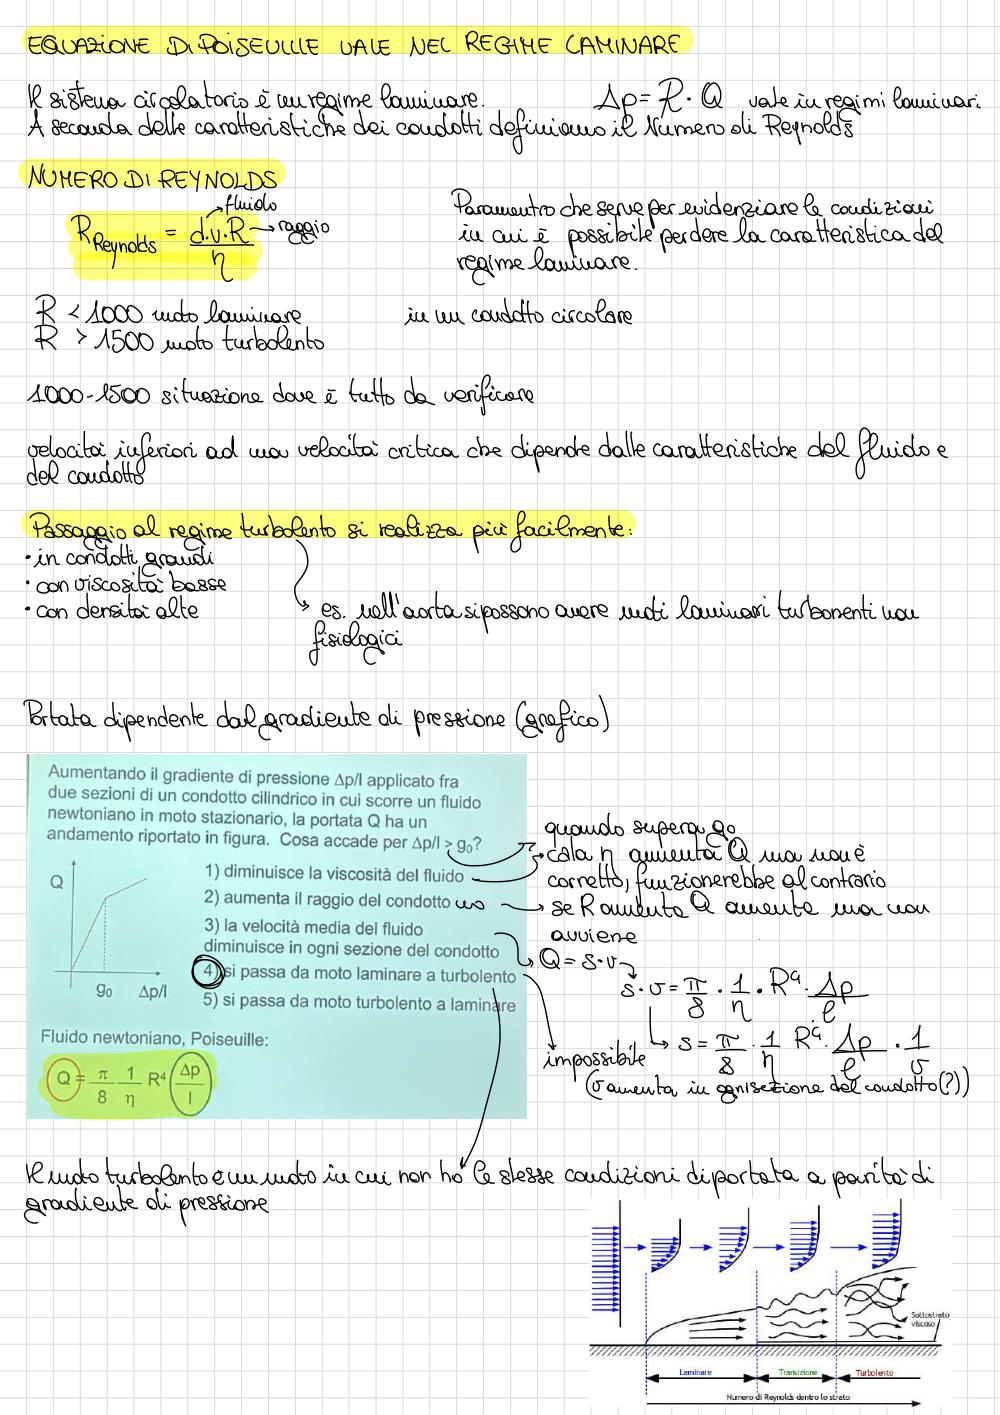 EQUAZIONE DI POISEUILLE VALE NEL REGIME LAMINARE
Il sistema circolatorio è un regime laminare. Δp = R · Q vale in regimi laminari
A seconda delle caratteristiche dei condotti definiamo il Numero di Reynolds
NUMERO DI REYNOLDS
fluido
R Reynolds = d.v.R / η → raggio
Paramentro che serve per evidenziare le condizioni
in cui è possibile perdere la caratteristica del
regime laminare.
R < 1000 moto laminare in un condotto circolare
R > 1500 moto turbolento
1000-1500 situazione dove è tutto da verificare
velocità inferiori ad una velocità critica che dipende dalle caratteristiche del fluido e
del condotto
Passaggio al regime turbolento si realizza più facilmente:
• in condotti grandi
• con viscosità basse
• con densità alte
es. nell'aorta si possono avere moti laminari turbonenti non
fisiologici
Portata dipendente dal gradiente di pressione (grafico)
Aumentando il gradiente di pressione Δp/l applicato fra
due sezioni di un condotto cilindrico in cui scorre un fluido
newtoniano in moto stazionario, la portata Q ha un
andamento riportato in figura. Cosa accade per Δp/l > g₀?
1) diminuisce la viscosità del fluido
2) aumenta il raggio del condotto no
3) la velocità media del fluido
diminuisce in ogni sezione del condotto
4) si passa da moto laminare a turbolento
5) si passa da moto turbolento a laminare
Q
g₀ Δp/l
Fluido newtoniano, Poiseuille:
Q = π/8 1/η R⁴ Δp/l
quando supera g₀
cala η aumenta Q ma non è
corretto, funzionerebbe al contrario
se R aumenta Q aumenta ma non
avviene
Q = S·v
S·v = π/8 · 1/η · R⁴ · Δp/l
S = π/8 · 1/η R⁴ · Δp/l · 1/v
impossibile
(v aumenta in ogni sezione del condotto(?))
Il moto turbolento è un moto in cui non ho le stesse condizioni di portata a parità di
gradiente di pressione
Sottostrato
viscoso
Laminare Transizione Turbolento
Numero di Reynolds dentro lo strato